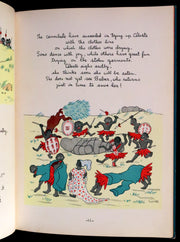 The cannibals have succeeded in tying up Celeste
with the clothes line
on which the clothes were drying.
Some dance with joy, while others have great fun
trying on the stolen garments.
Celeste sighs sadly,
she thinks soon she will be eaten.
She does not yet see Babar, who returns
just in time to save her!